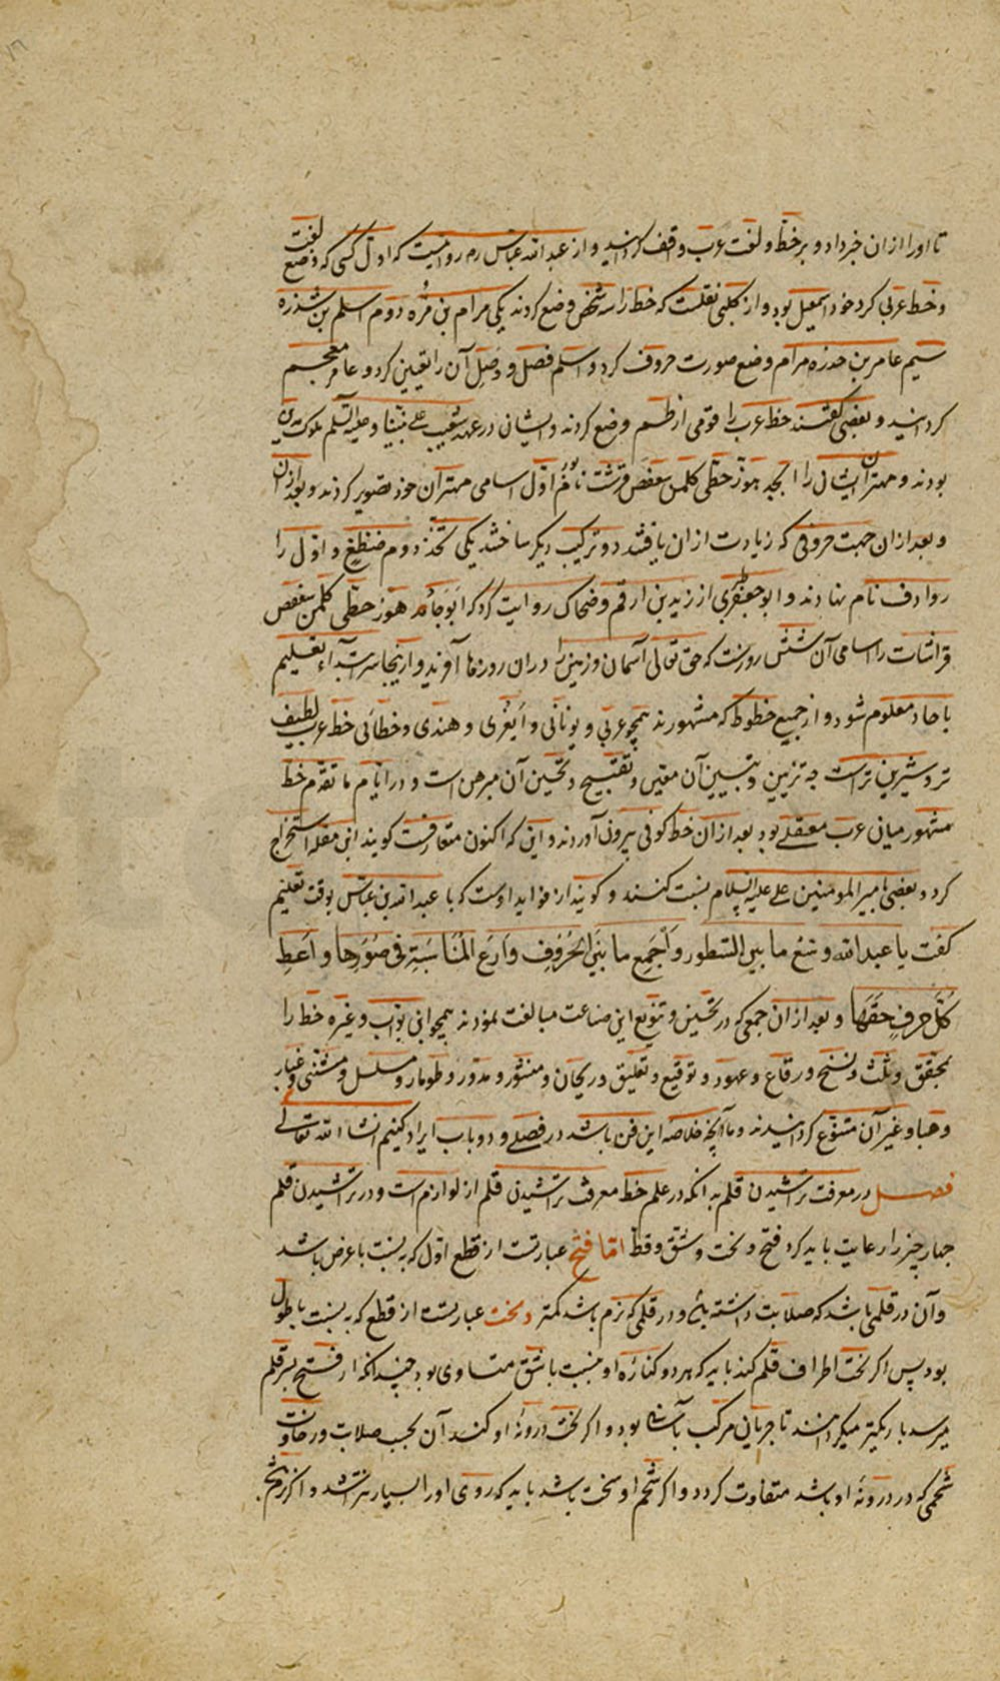 تا اورا ازان خبر داد و بر خط و لغت عرب واقف گردانید و از عبدالله عباس رم روایتست که اول کسی که وضع لغت
و خط عربی کرد خود اسمعیل بود و از کلبی نقلست که خط را سه شخص وضع کردند یکی مرام بن مره دوم اسلم بن شدره
سیم عامر بن حدره مرام وضع صورت حروف کرد و اسلم فصل و وصل آن را تعیین کرد و عامر معجم
گردانید و بعضی گفتند خط عرب را قومی از طسم وضع کردند و ایشان در عهد شعیب علی نبینا و علیه السلم ملوک مدین
بودند و مهتران ایشان را ابجد هوز حطی کلمن سعفص قرشت نام بود اول اسامی مهتران خود تصویر کردند و بعد ازان
و بعد ازان جهت حروفی که زیادت ازان یافتند دو ترکیب دیگر ساختند یکی ثخذ دوم ضظغ و اول را
روادف نام نهادند و ابو جعفر طبری از زید بن ارقم و ضحاک روایت کرد که ابوجاد هوز حطی کلمن سعفص
قراشات را اسامی آن شش روزست که حق تعالی آسمان و زمین را دران روزها آفرید و ازینجا سر ابتداء تعلیم
باحاد معلوم شود و از جمیع خطوط که مشهورند همچو عربی و یونانی و ایغری و هندی و خطائی خط عرب لطیف
تر و شیرین ترست چه تزیین و تبیین آن معین و تقبیح و تحسین آن مبرهن است و در ایام ما تقدم خط
مشهور میان عرب معقلی بود بعد ازان خط کوفی بیرون آوردند و این که اکنون متعارفست گویند ابن مقله استخراج
کرد و بعضی بامیر المومنین علی علیه السلام نسبت کنند و گویند از فواید اوست که با عبدالله بن عباس بوقت تعلیم
گفت یا عبدالله وسع ما بین السطور و اجمع ما بین الحروف و ارع المناسبة فی صورها و اعط
کل حرف حقها و بعد ازان جمعی که در تحسین و تنویع این صناعت مبالغت نمودند همچو ابن بواب و غیره خط را
بمحقق و ثلث و نسخ و رقاع و عهود و توقیع و تعلیق و ریحان و منثور و مدور و طومار و مسلسل و مثنی و غبار
و هبا و غیر آن متنوع گردانیدند و ما آنچه خلاصه این فن باشد در فصلی و دو باب ایراد کنیم انشا الله تعالی
فصل در معرفت تراشیدن قلم بدانکه در علم خط معرفت تراشیدن قلم از لوازم است و در تراشیدن قلم
چهار چیز را رعایت باید کرد فتح و نحت و شق و قط اما فتح عبارتست از قطع اول که به نسبت با عرض باشد
و آن در قلمی باشد که صلابت داشته باشد و در قلمی که نرم باشد کمتر و نحت عبارتست از قطع که به نسبت با طول
بود پس اگر نحت اطراف قلم کند باید که هر دو کناره او بنسبت با شق متساوی بود چندانکه از فتح بسر قلم
میرسد باریکتر میگرداند تا جریان مرکب بآسانی بود و اگر نحت درونه او کند آن بحسب صلابت و رخاوت
شحمی که در درونه او باشد متفاوت گردد و اگر شحم او سخت باشد باید که روی اورا بسیار نتراشد و اگر نرم